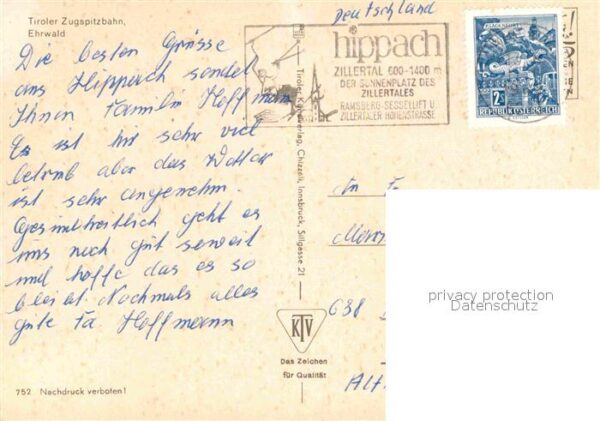 Tiroler Zugspitzbahn,
Ehrwald
Die besten Grüsse
aus Hippach sendet
Ihnen Familie Hoffmann
Es ist hir sehr viel
betrieb aber das Wetter
ist sehr angenehm.
Gesundheitlich geht es
uns noch gut soweit
und hoffe das es so
bleibt. Nochmals alles
gute Fa Hoffmann
752 Nachdruck verboten!
Tiroler Kunstverlag, Chizzali, Innsbruck, Sillgasse 21
KTV
Das Zeichen
für Qualität
Deutschland
hippach
ZILLERTAL 600-1400 m
DER SONNENPLATZ DES
ZILLERTALES
RAMSBERG-SESSELLIFT U.
ZILLERTALER HÖHENSTRASSE
KLAGENFURT
2S
REPUBLIK ÖSTERREICH
An F
638
Alt
privacy protection
Datenschutz